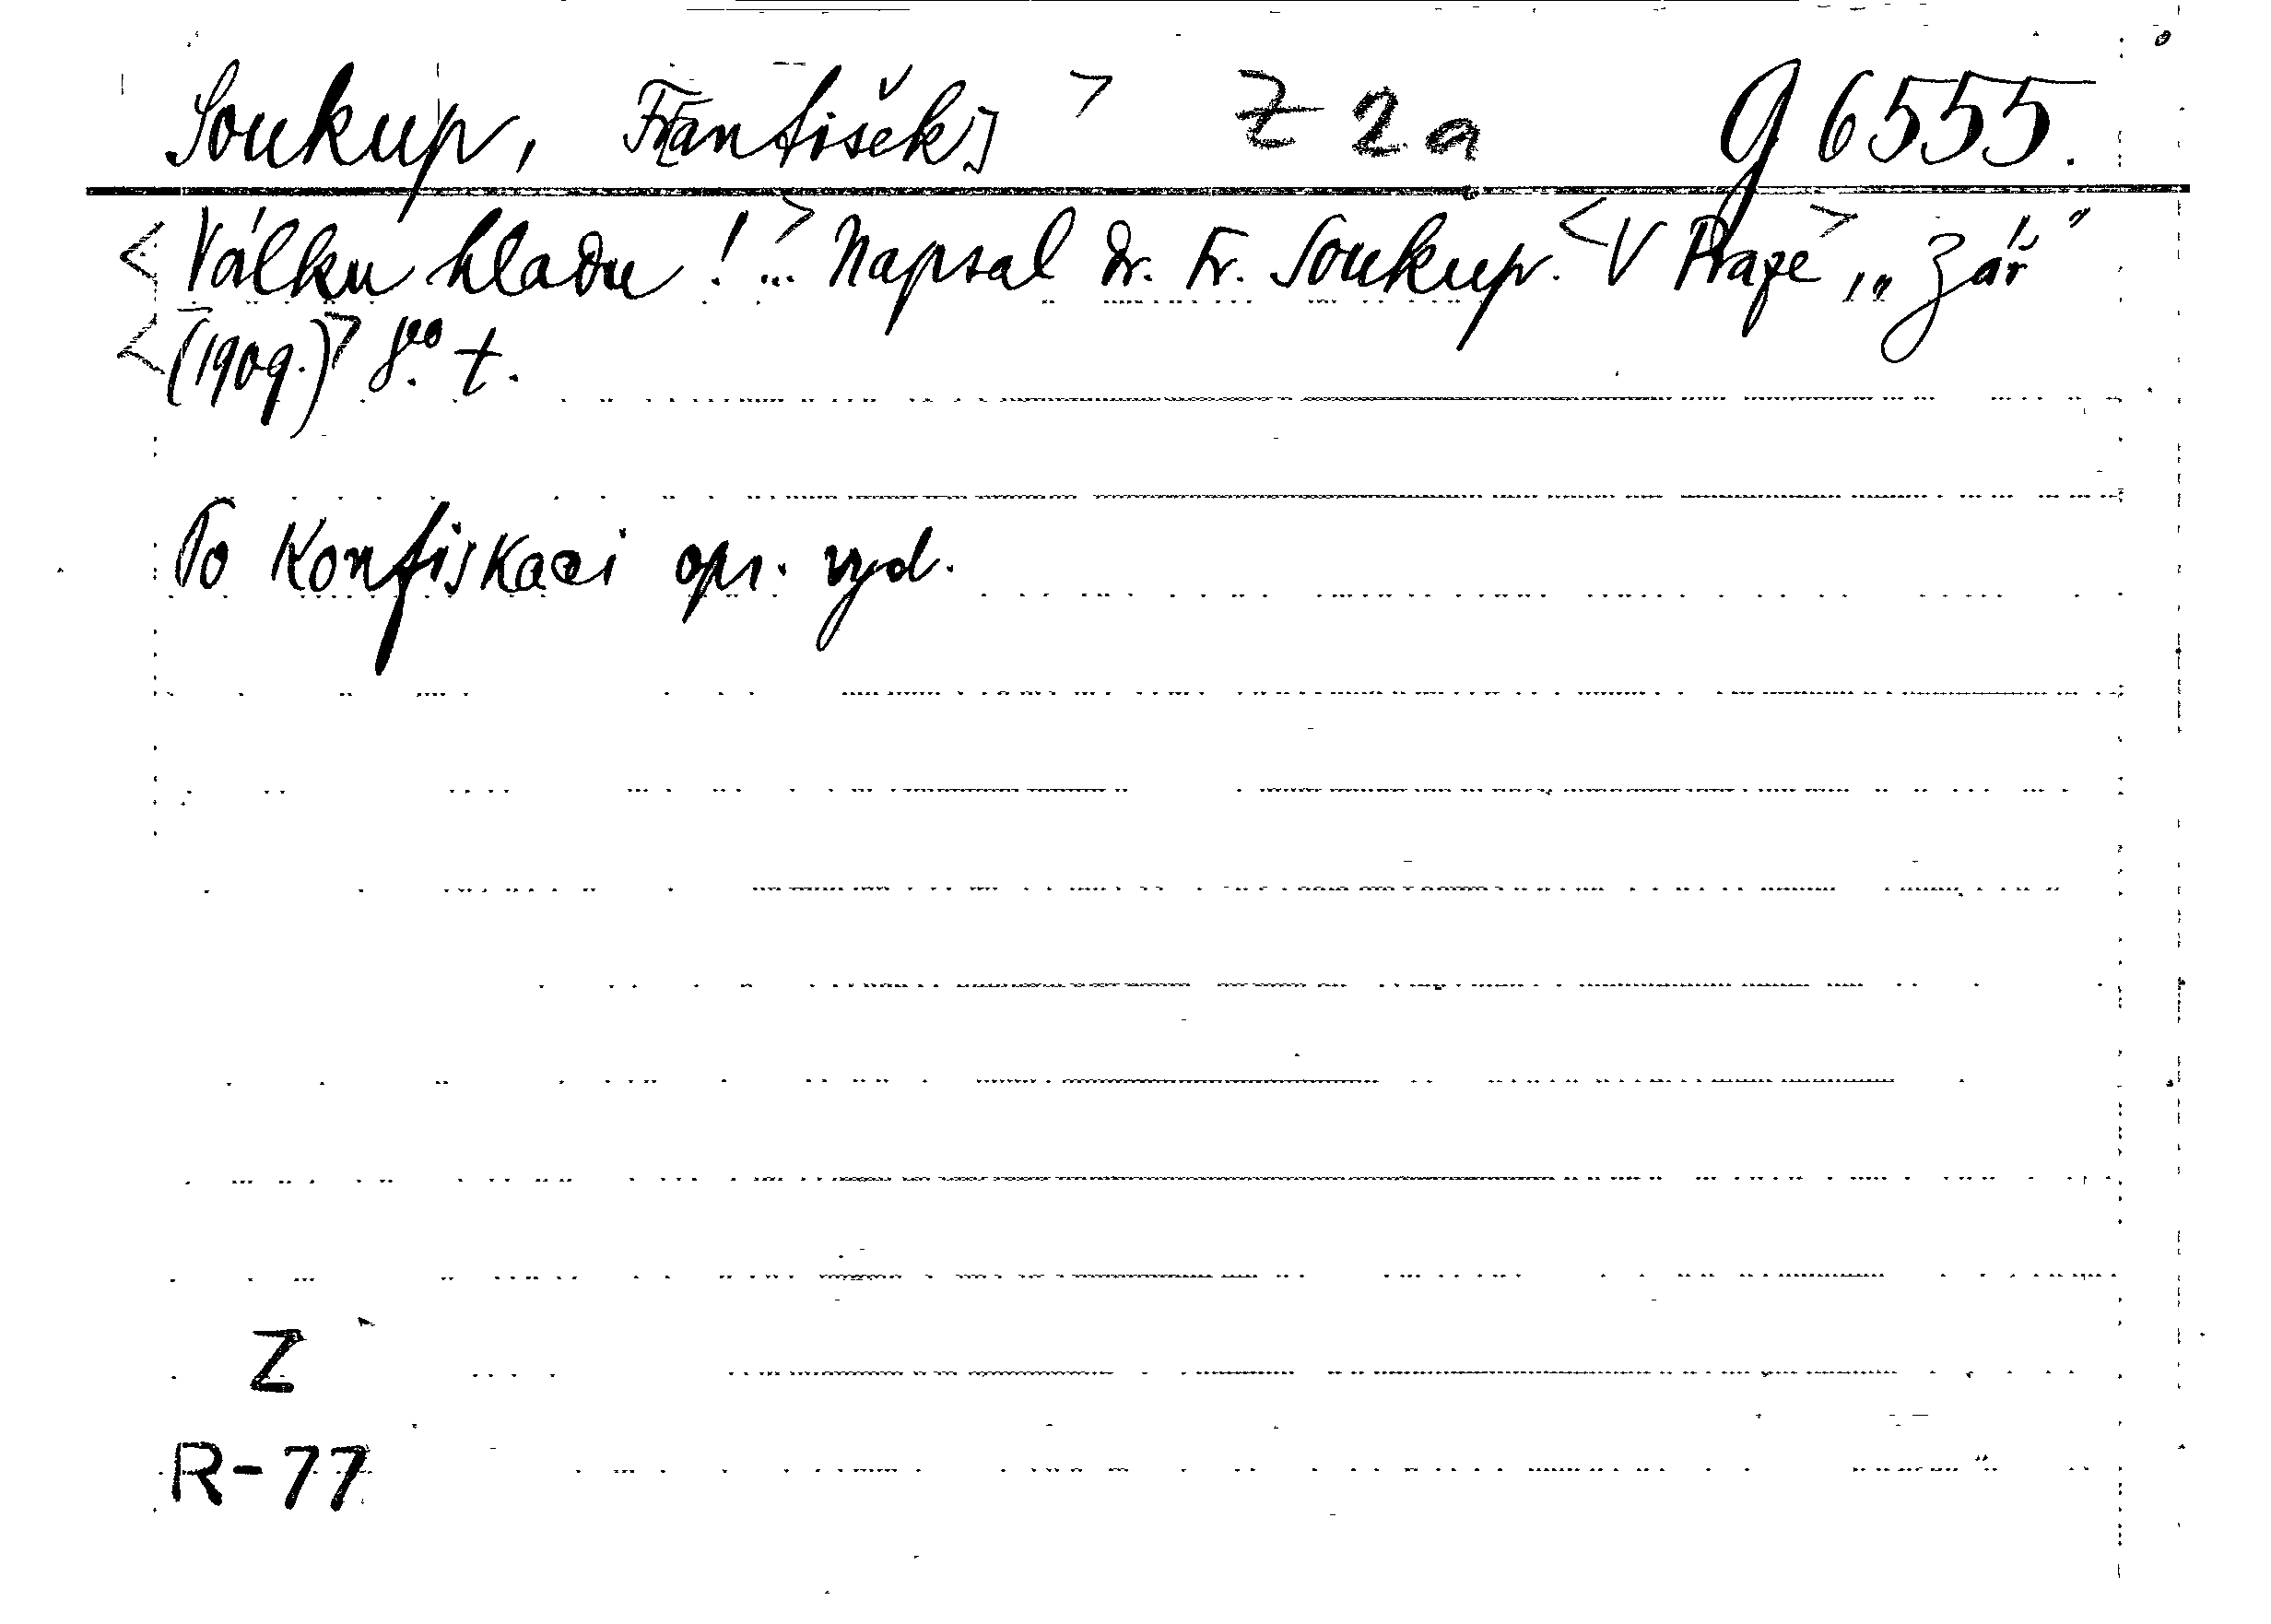 Soukup, F[rantišek] > Z 2a g 6555.
<Válku hladu!...> Napsal Dr. Fr. Soukup. <V Praze>, „Zář"
<(1909.)> 8⁰. t.
Po konfiskaci opr. vyd.
Z
R-77